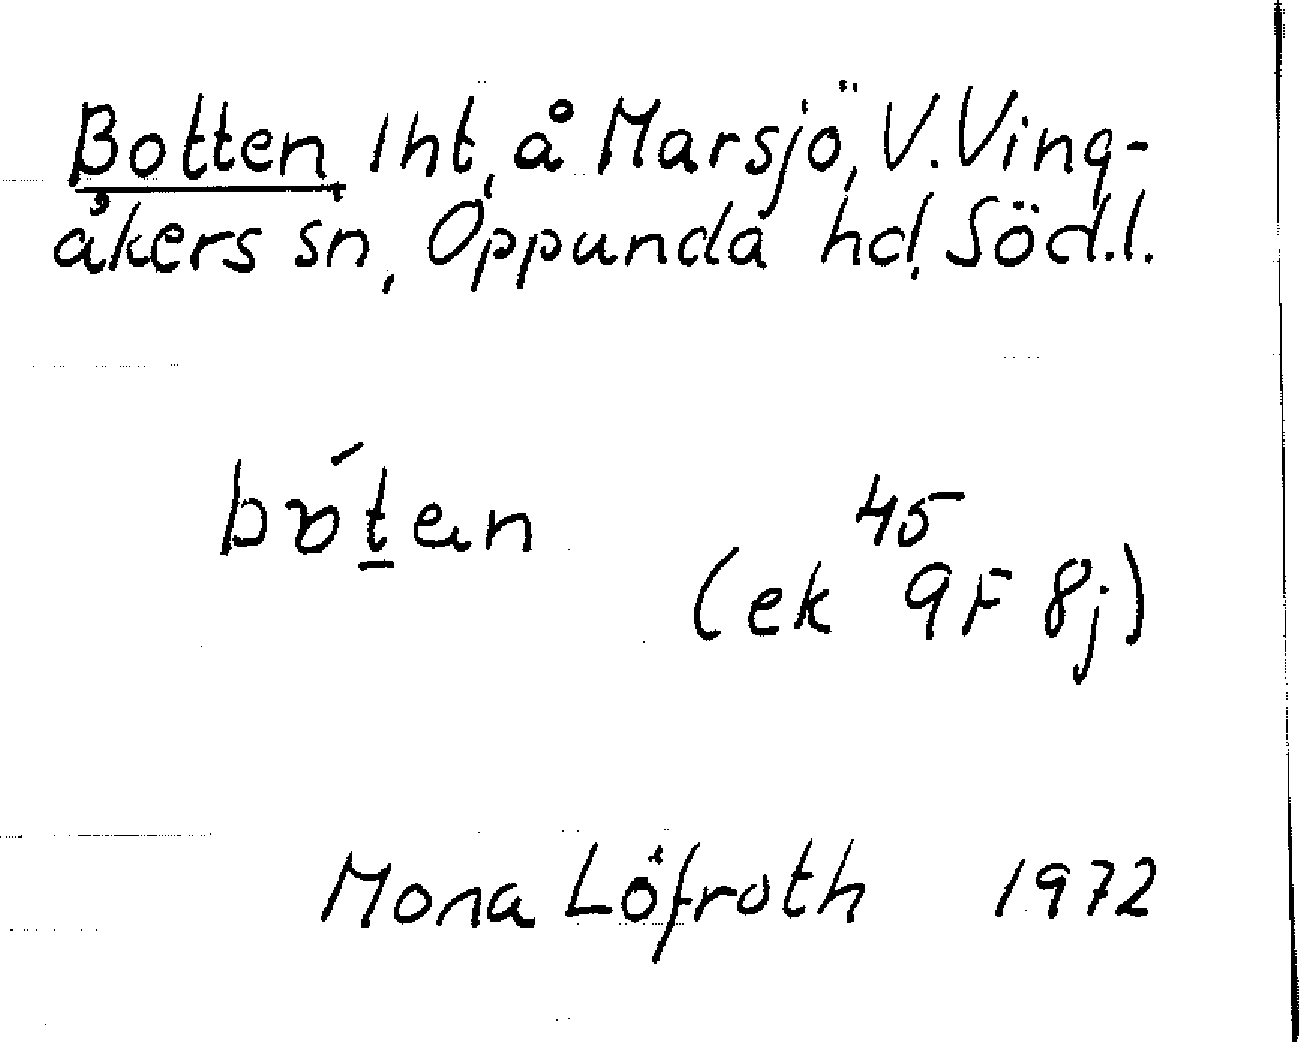 Botten lht, å Marsjö, V. Ving-
åkers sn, Oppunda hd, Söd.l.
bó̱ten
45
(ek 9F 8j)
Mona Löfroth 1972